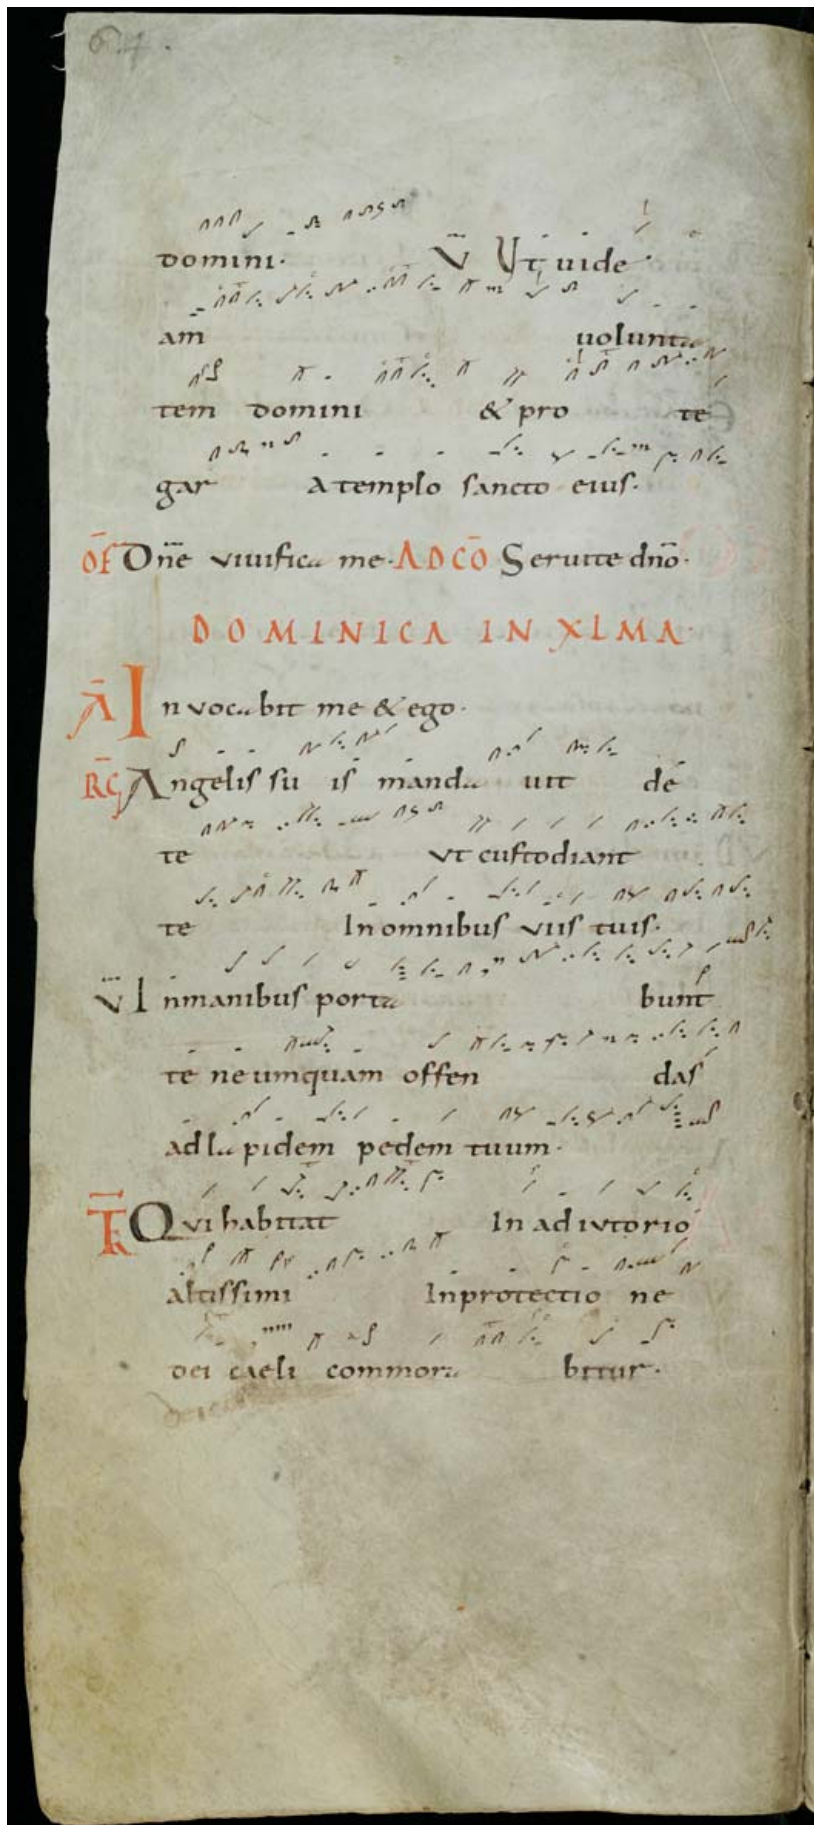 64.
domini. V̄ Ut uide
am uolunta
tem domini & pro te
gar a templo sancto eius.
OF Dn̄e vivifica me. AD CŌ Seruite dn̄o.
DOMINICA IN XLMA
Ā Invocabit me & ego.
R̄G Angelis su is manda uit de
te vt custodiant
te In omnibus viis tuis.
V̄ Inmanibus porta bunt
te ne umquam offen das
ad lapidem pedem tuum.
TR̄ Qui habitat In adiutorio
altissimi Inprotectio ne
dei caeli commora bitur.